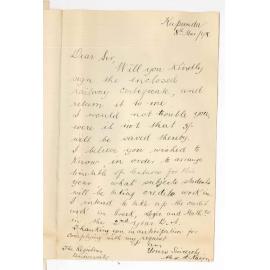 Kapunda
8th Mar /98
Dear Sir,
Will you kindly
sign the enclosed
railway certificate, and
return it to me
I would not trouble you,
were it not that
will be saved thereby.
I believe you wished to
know in order to arrange
timetable of lectures for this
year what subjects students
will be taking credit work in
I intend to take up the
work in Greek, Logic and Math
in the 2nd year B.A.
Thanking you in anticipation for
complying with my request
I am
Yours Sincerely
The Registrar
University